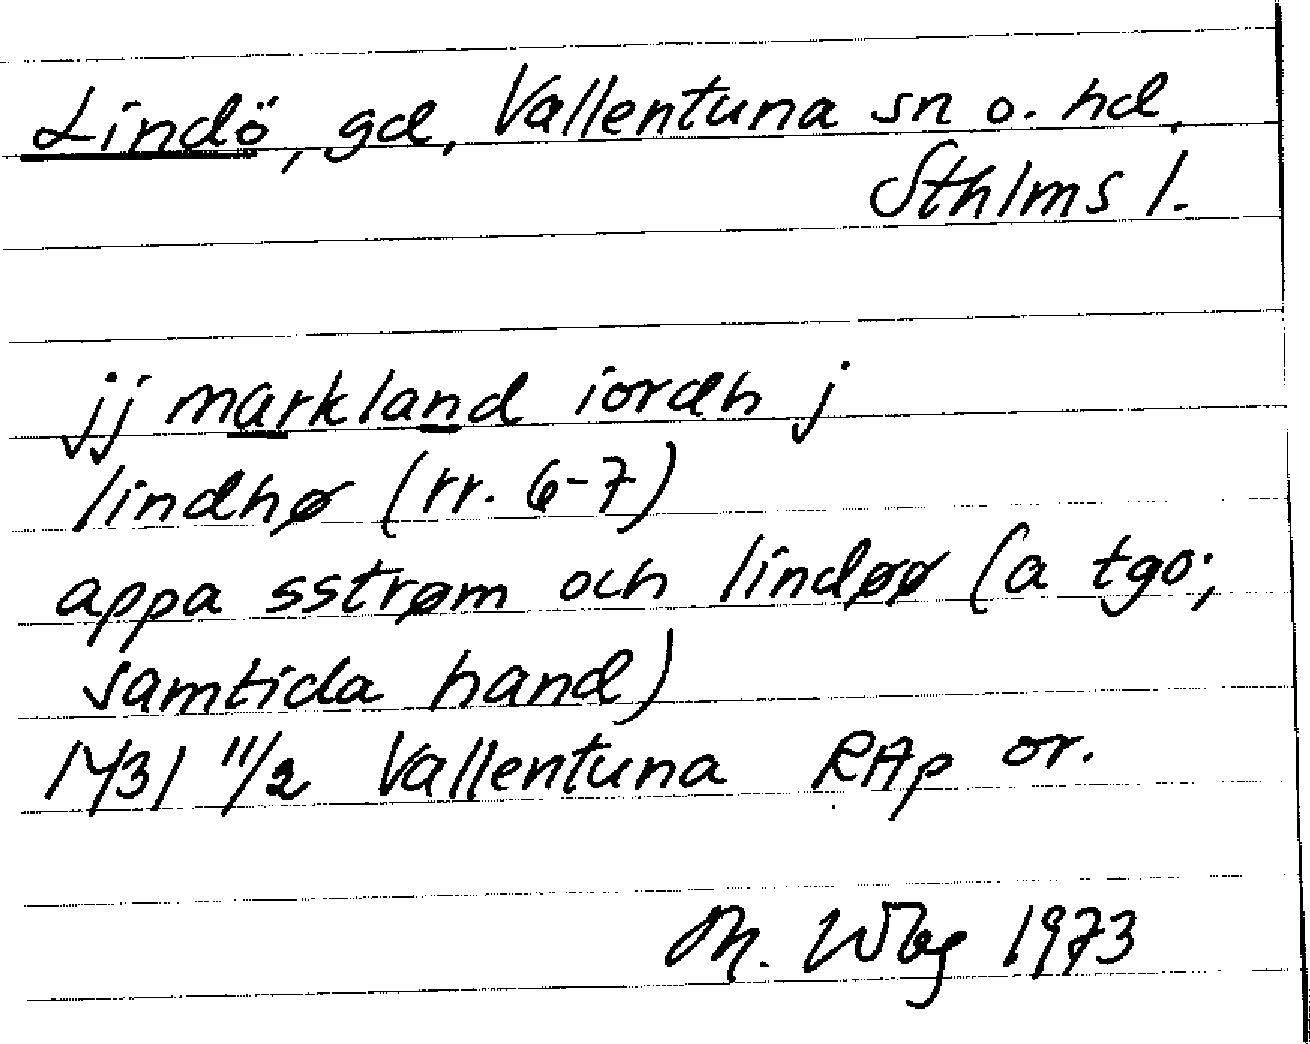 Lindö, gd, Vallentuna sn o. hd,
Sthlms l.
jj markland iordh j
lindhø (rr. 6-7)
appa sstrøm och lindøø (a tgo;
samtida hand)
1431 11/2 Vallentuna RAp or.
M. Wbg 1973